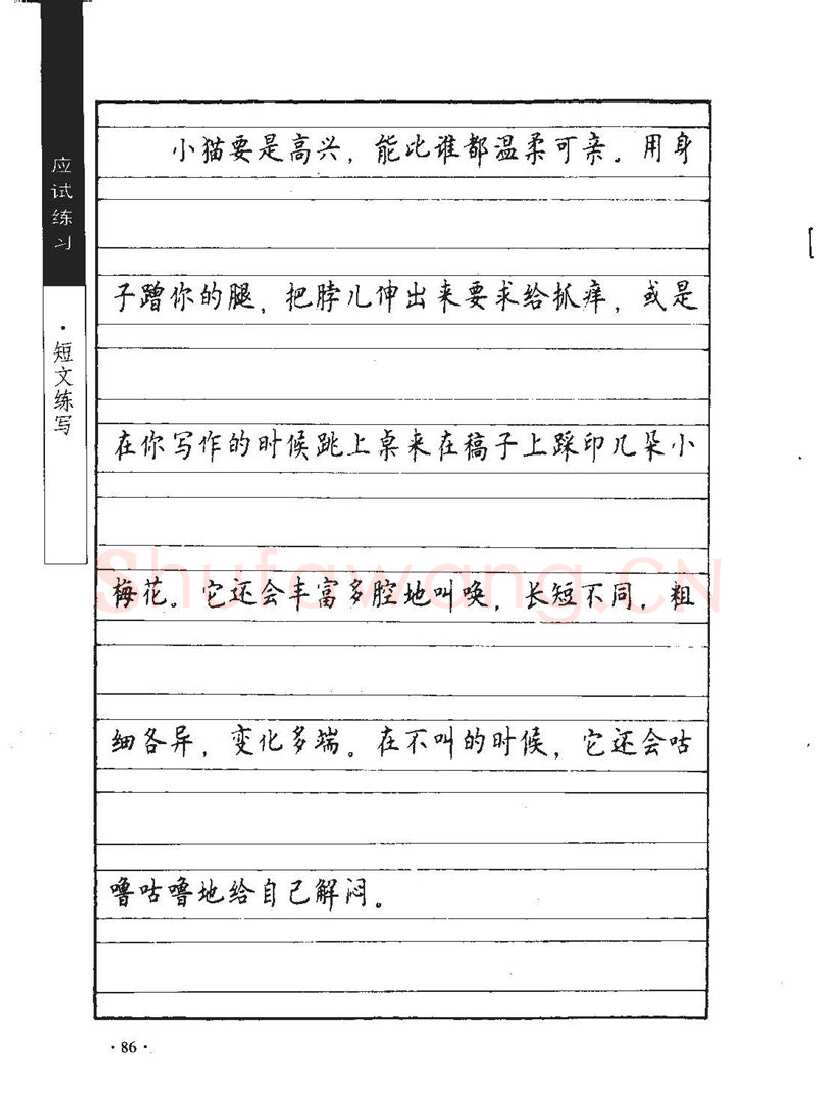 应试练习
·短文练写
小猫要是高兴，能比谁都温柔可亲。用身
子蹭你的腿，把脖儿伸出来要求给抓痒，或是
在你写作的时候跳上桌来在稿子上踩印几朵小
梅花。它还会丰富多腔地叫唤，长短不同，粗
细各异，变化多端。在不叫的时候，它还会咕
噜咕噜地给自己解闷。
shufawang.CN
·86·